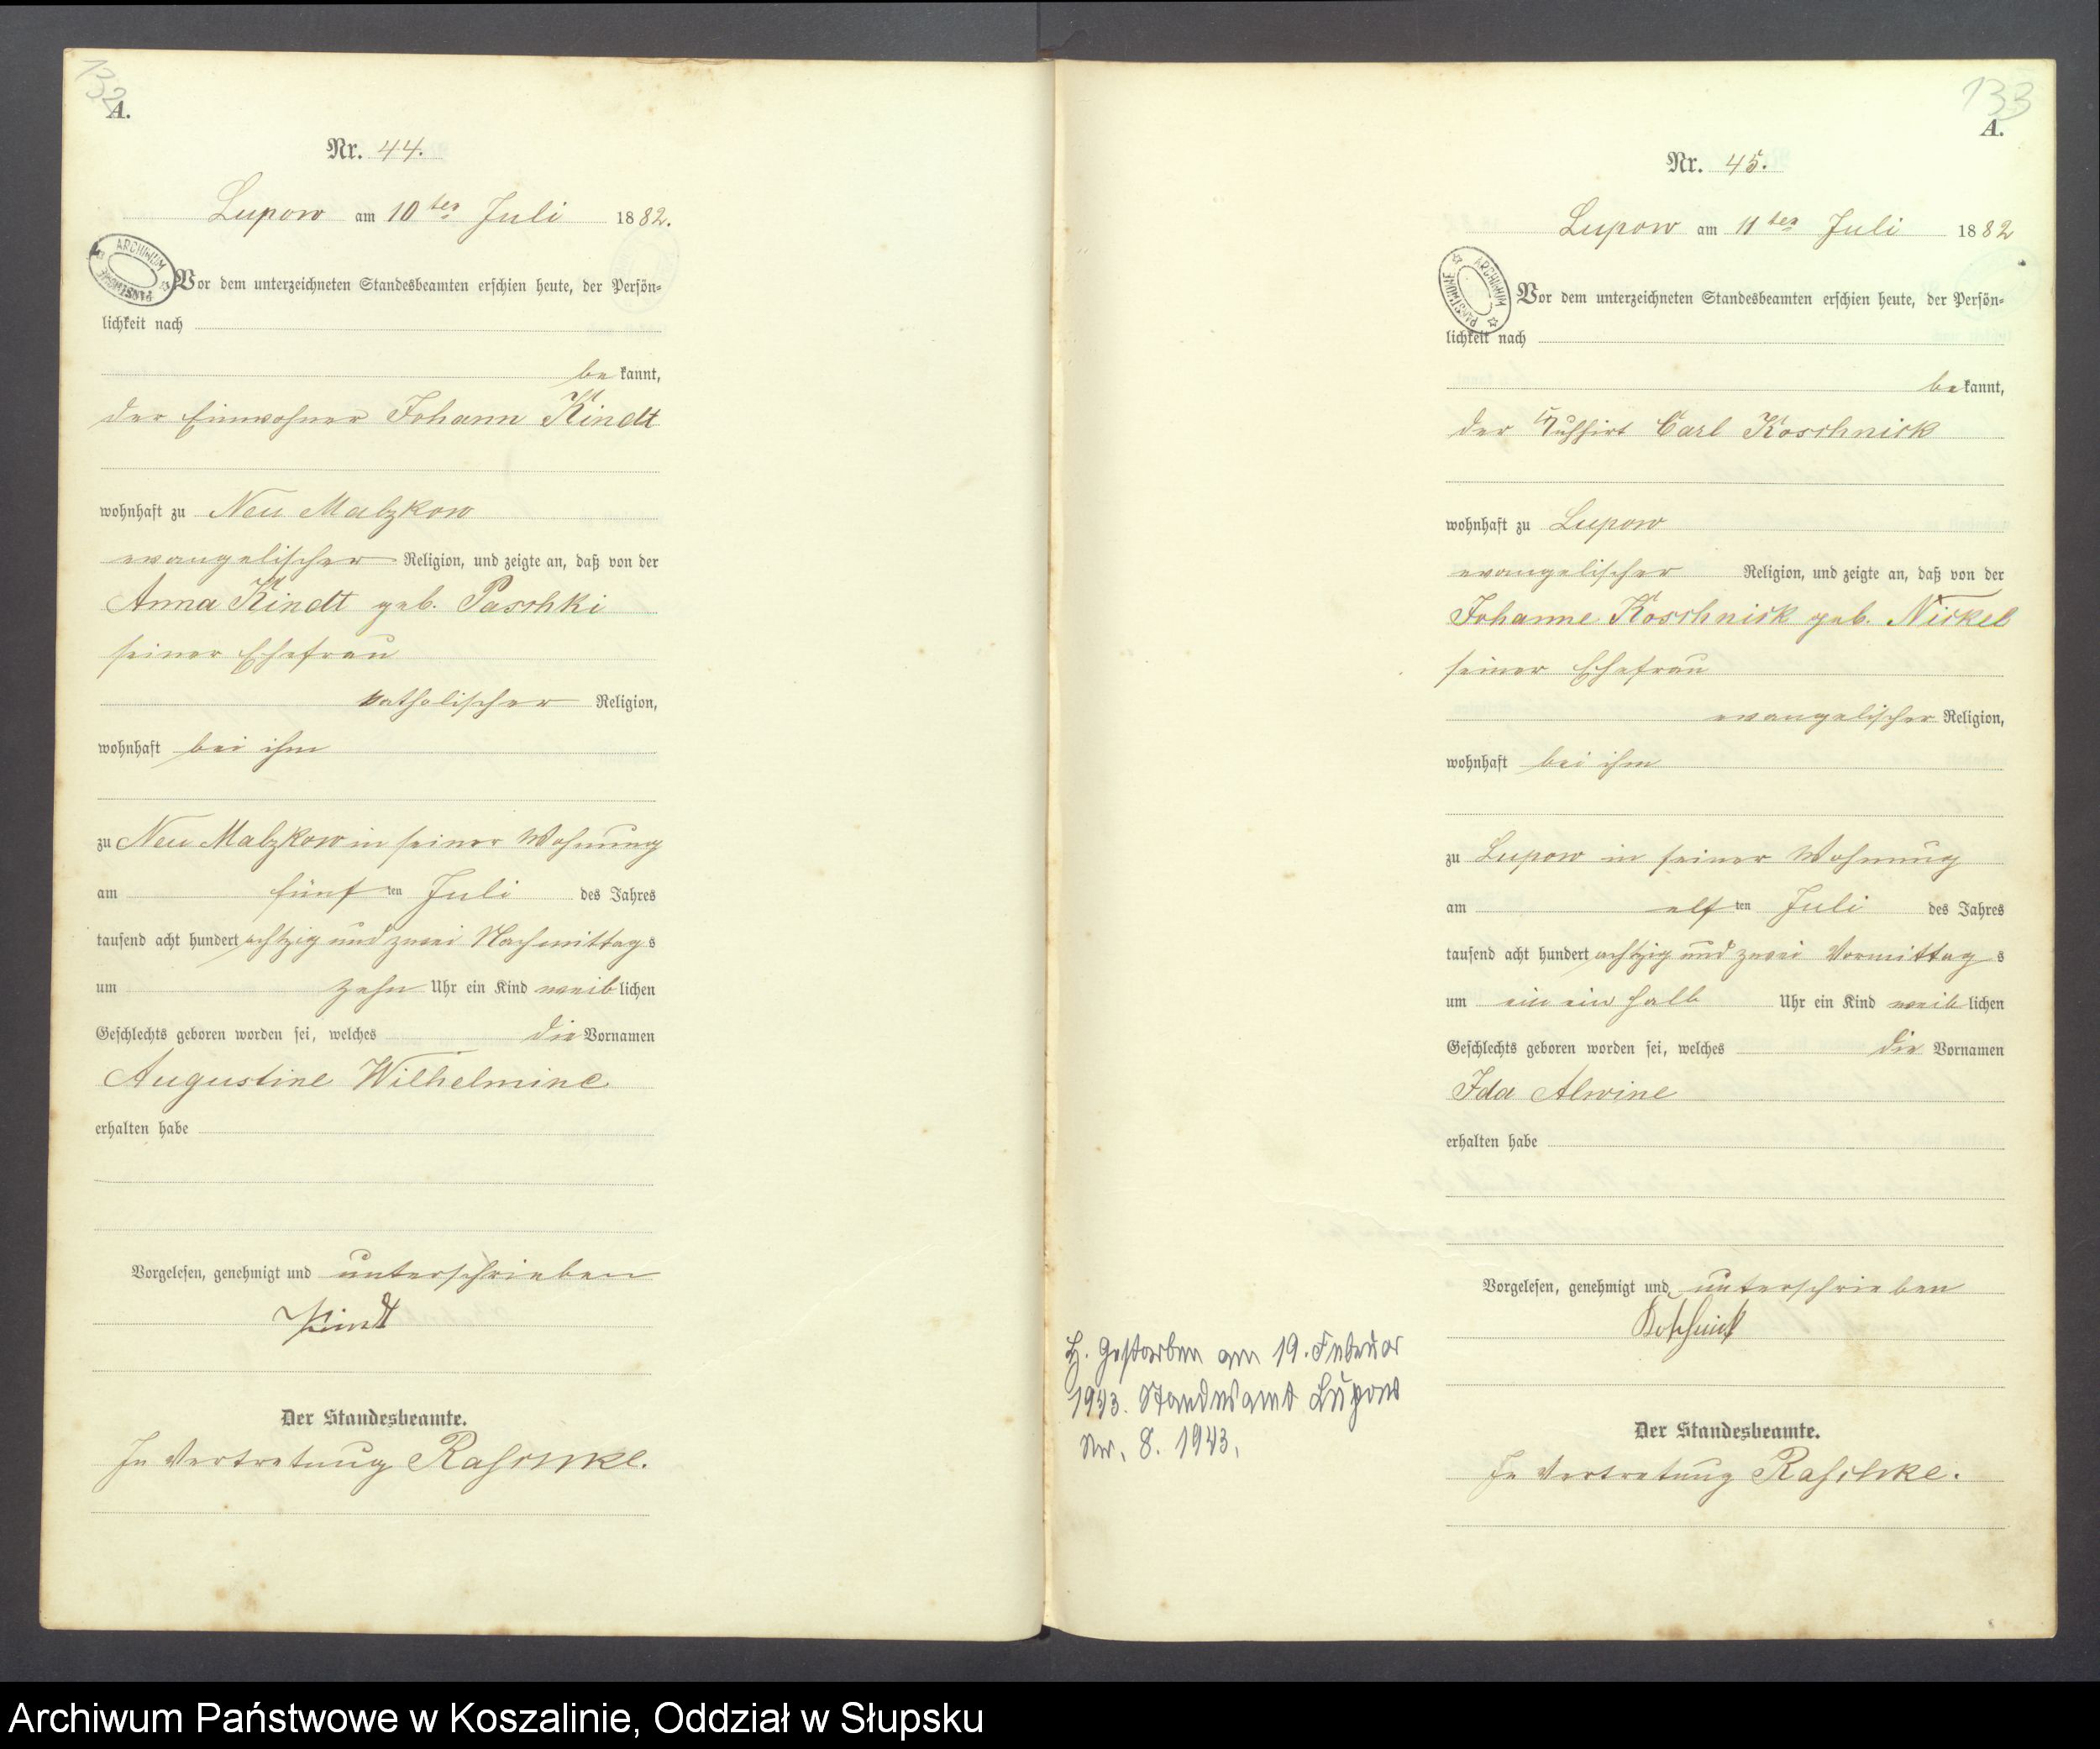 132
A.
Nr. 44.
Lupow am 10ten Juli 1882.
ARCHIWUM PAŃSTWOWE
Vor dem unterzeichneten Standesbeamten erschien heute, der Persön-
lichkeit nach
be kannt,
der Einwohner Johann Kindt
wohnhaft zu Neu Malzkow
evangelischer Religion, und zeigte an, daß von der
Anna Kindt geb. Paschki
seiner Ehefrau
katholischer Religion,
wohnhaft bei ihm
zu Neu Malzkow in seiner Wohnung
am fünf ten Juli des Jahres
tausend acht hundert achtzig und zwei Nachmittags
um zehn Uhr ein Kind weiblichen
Geschlechts geboren worden sei, welches die Vornamen
Augustine Wilhelmine
erhalten habe
Vorgelesen, genehmigt und unterschrieben
Kindt
Der Standesbeamte.
In Vertretung Raschke.
133
A.
Nr. 45.
Lupow am 11ten Juli 1882
ARCHIWUM PAŃSTWOWE
Vor dem unterzeichneten Standesbeamten erschien heute, der Persön-
lichkeit nach
be kannt,
der Kuhhirt Carl Koschnick
wohnhaft zu Lupow
evangelischer Religion, und zeigte an, daß von der
Johanne Koschnick geb. Nickel
seiner Ehefrau
evangelischer Religion,
wohnhaft bei ihm
zu Lupow in seiner Wohnung
am elf ten Juli des Jahres
tausend acht hundert achtzig und zwei Vormittags
um ein ein halb Uhr ein Kind weiblichen
Geschlechts geboren worden sei, welches die Vornamen
Ida Alwine
erhalten habe
Vorgelesen, genehmigt und unterschrieben
Koschnick
H. Gestorben am 19. Februar
1943. Standesamt Lupow
Nr. 8. 1943.
Der Standesbeamte.
In Vertretung Raschke.
Archiwum Państwowe w Koszalinie, Oddział w Słupsku